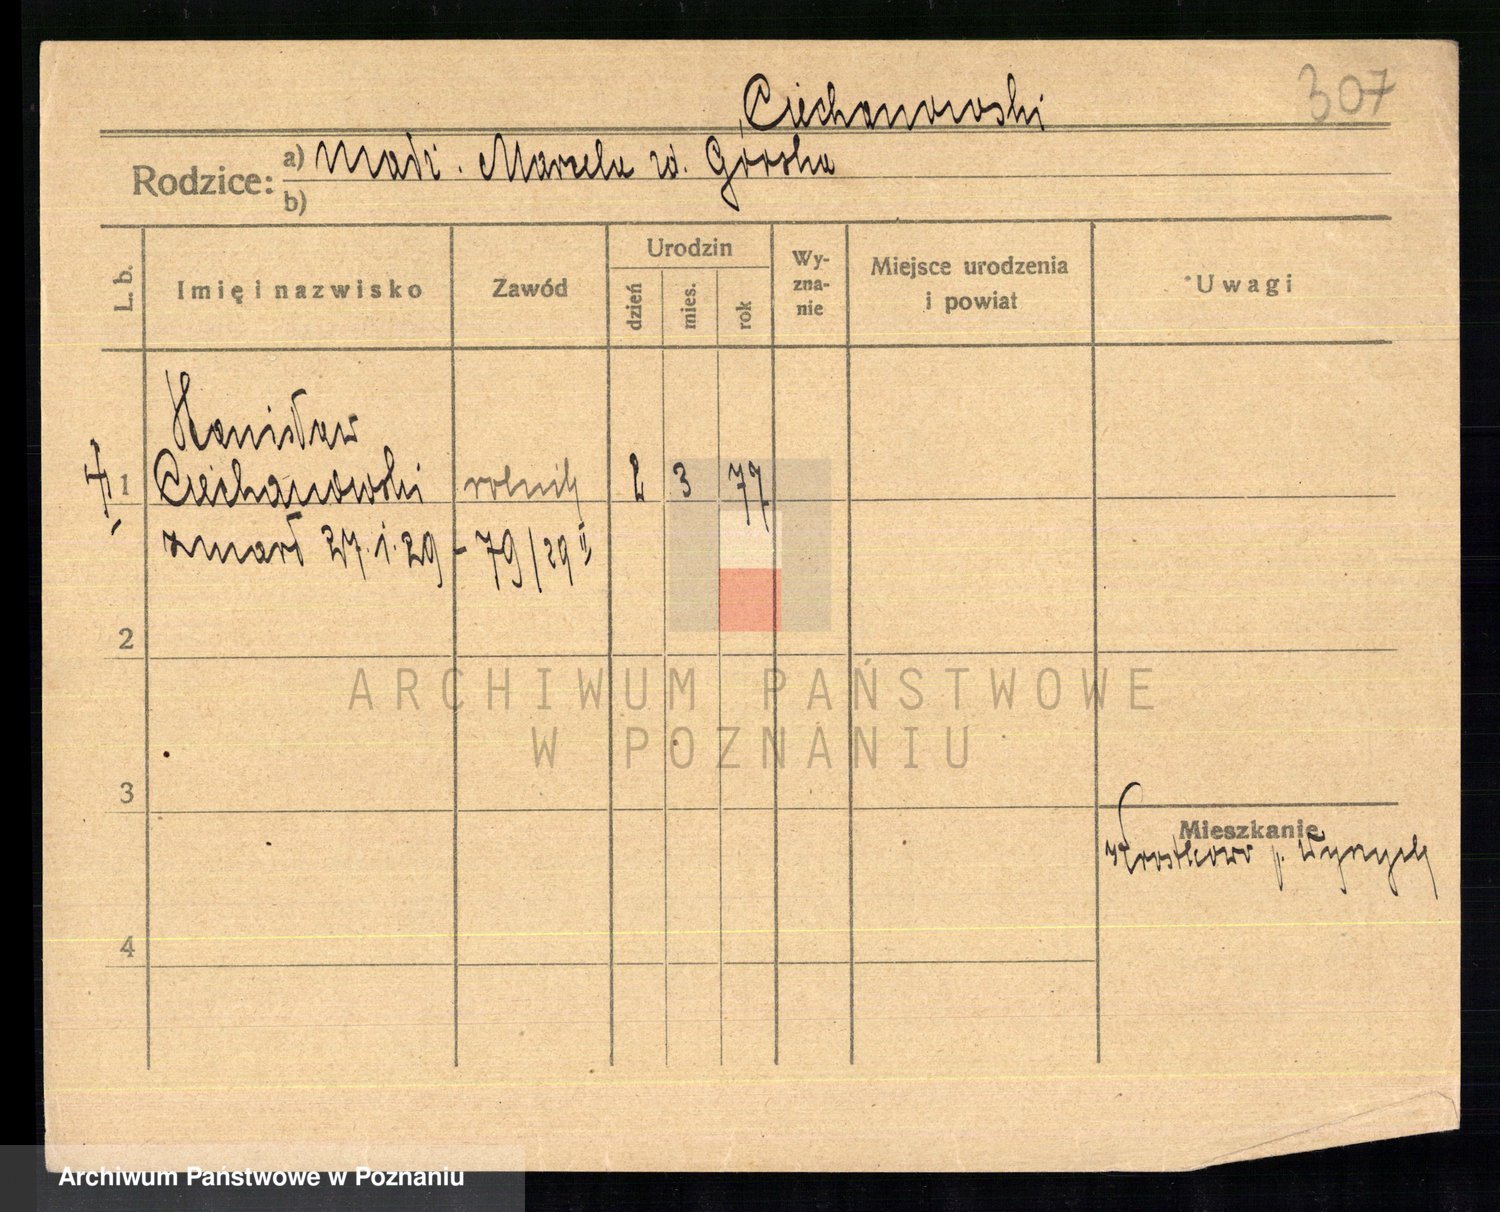 Ciechanowski
307
Rodzice:
a) Małż. Marcela zd. Górska
b)
L. b.
Imię i nazwisko
Zawód
Urodzin
dzień
mies.
rok
Wy-
zna-
nie
Miejsce urodzenia
i powiat
Uwagi
Stanisław
1 Ciechanowski rolnik 2 3 77
zmarł 27.1.29 - 79/29 II
2
ARCHIWUM PAŃSTWOWE
W POZNANIU
3
Mieszkanie
4
Archiwum Państwowe w Poznaniu